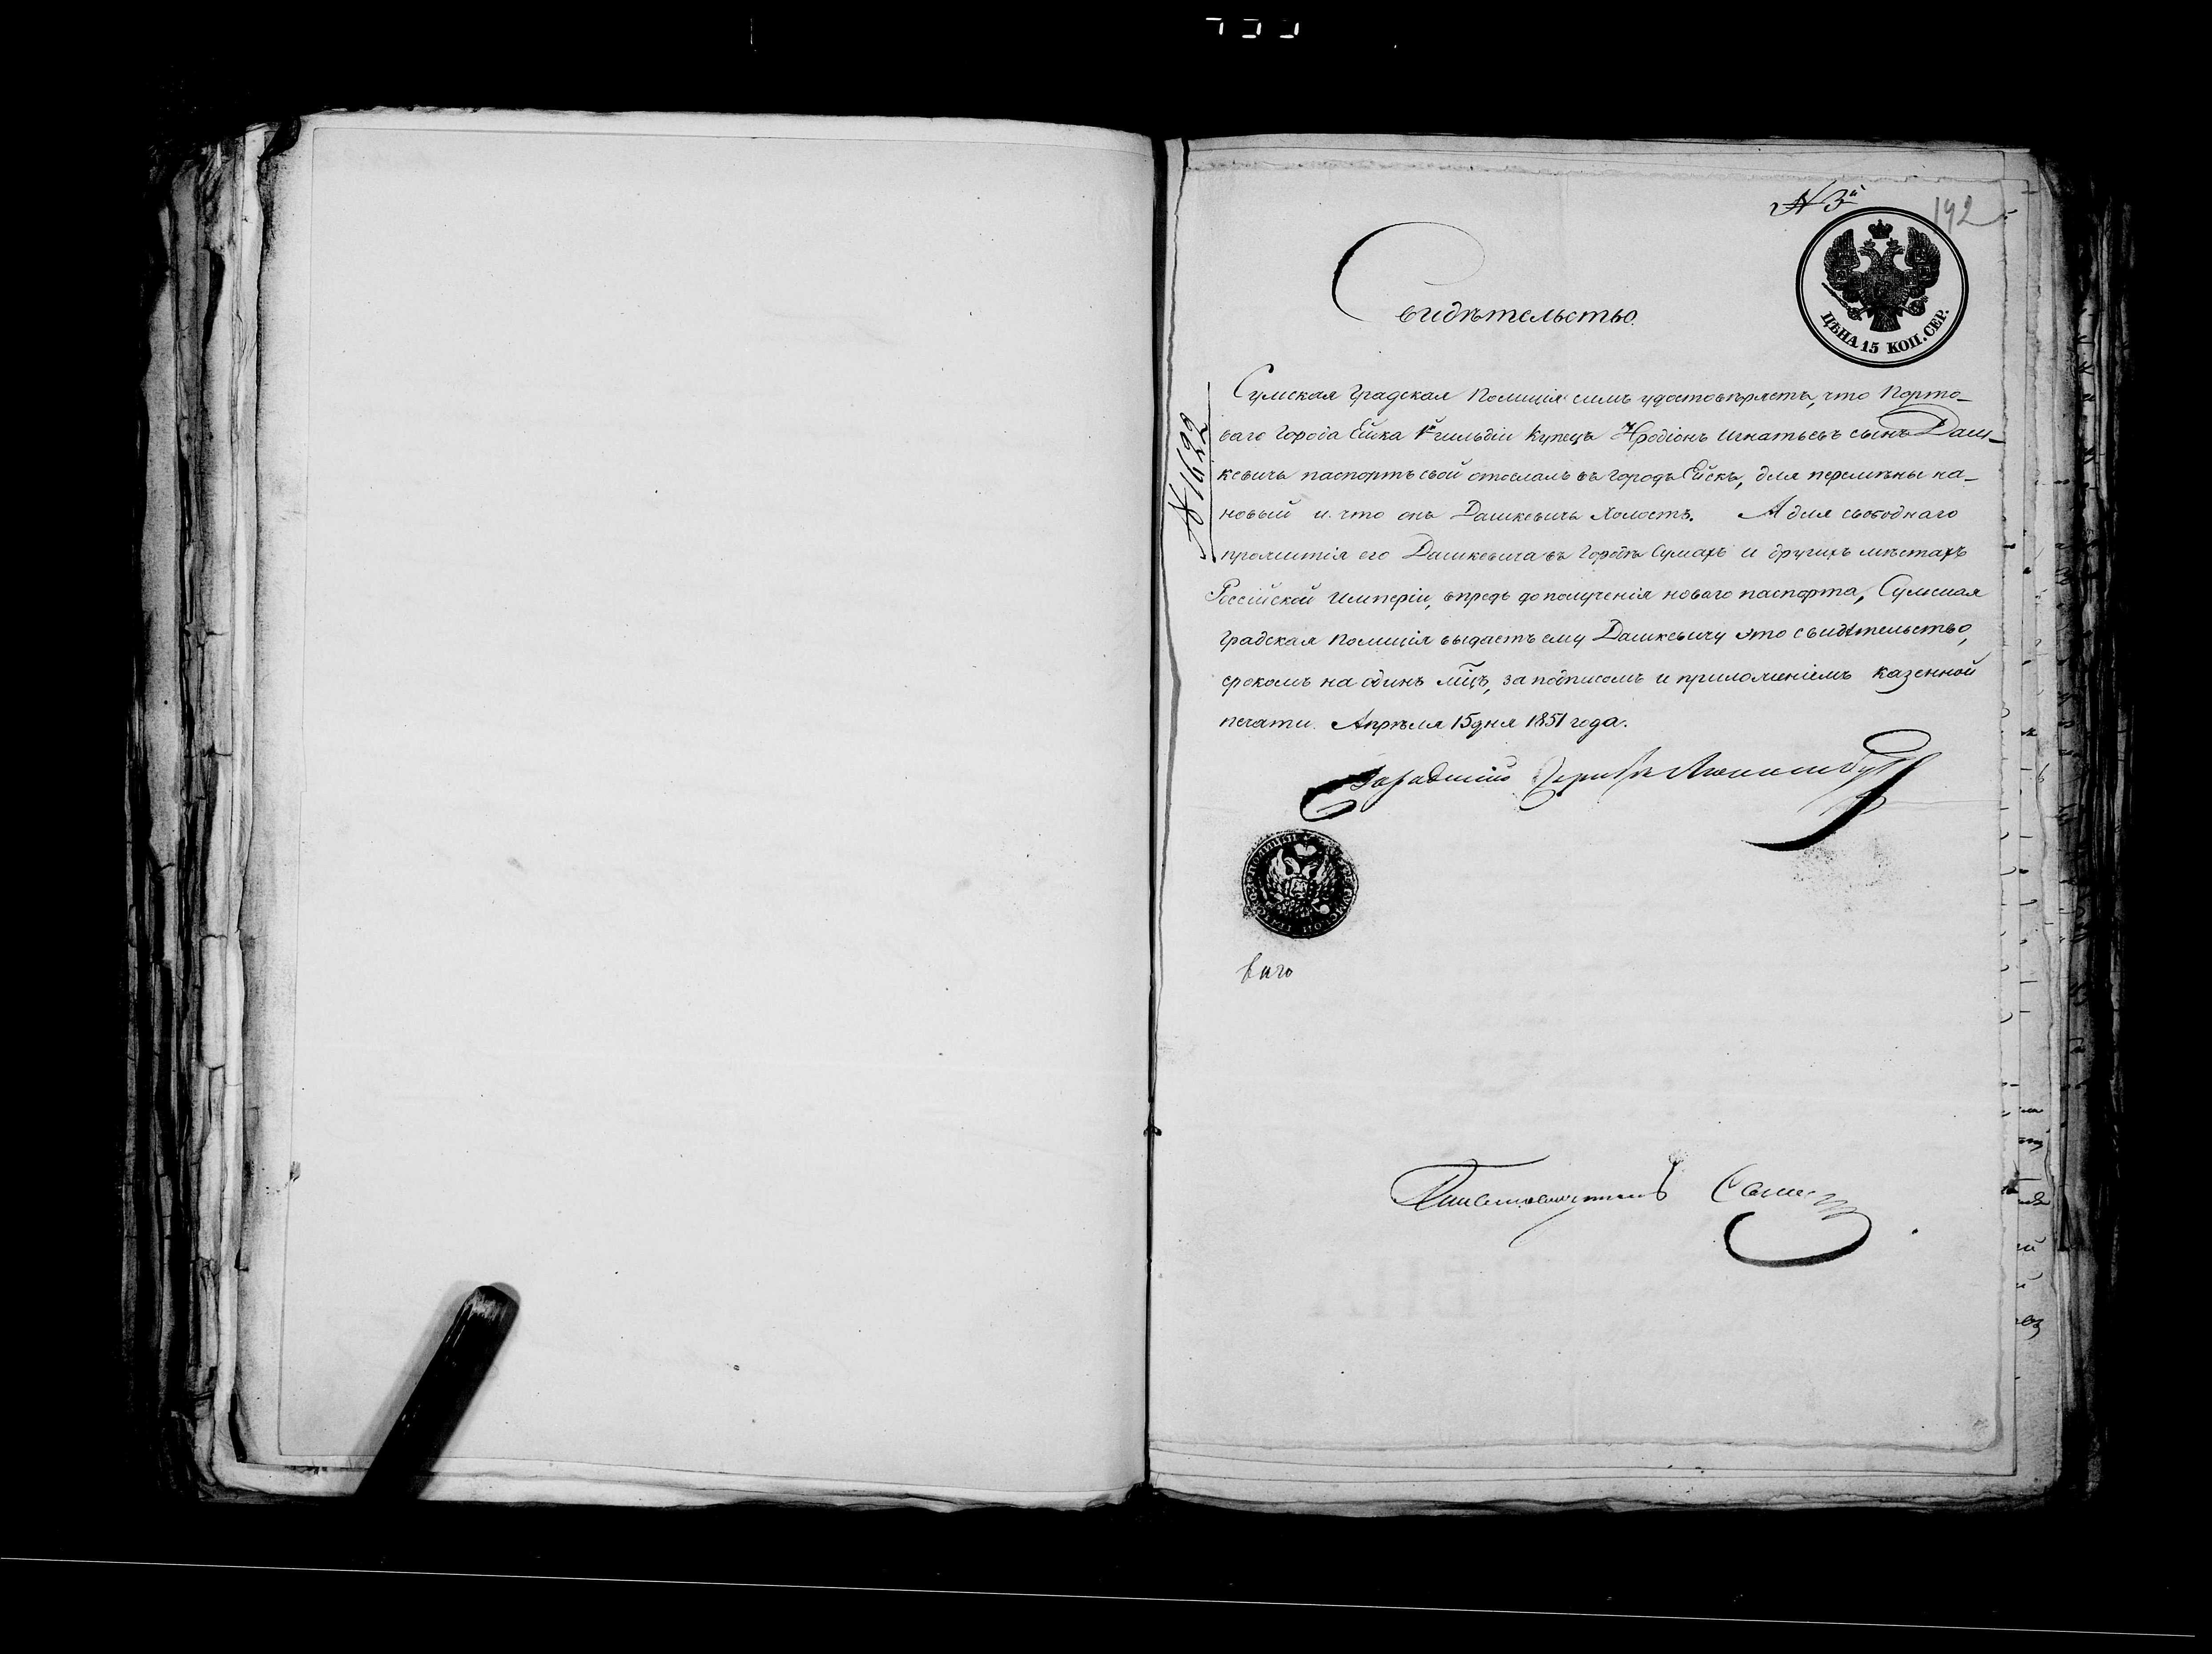 № 3й
192
ЦѢНА 15 КОП. СЕР.
Свидѣтельство.
№ 1622
Сумская Градская Полиція симъ удостовѣряетъ, что Порто-
ваго Города Ейска 1й гильдіи Купецъ Иродіонъ Игнатьевъ сынъ Даш-
кевичъ паспортъ свой отослалъ въ городъ Ейскъ, для перемѣны на-
новый и что онъ Дашкевичъ Холостъ. А для свободнаго
прожитія его Дашкевича въ Городѣ Сумахъ и другихъ мѣстахъ
Россійской Имперіи, впредь до полученія новаго паспорта, Сумская
Градская Полиція выдаетъ ему Дашкевичу это свидѣтельство,
срокомъ на одинъ мцъ, за подписомъ и приложеніемъ казенной
печати. Апрѣля 15 дня 1851 года.